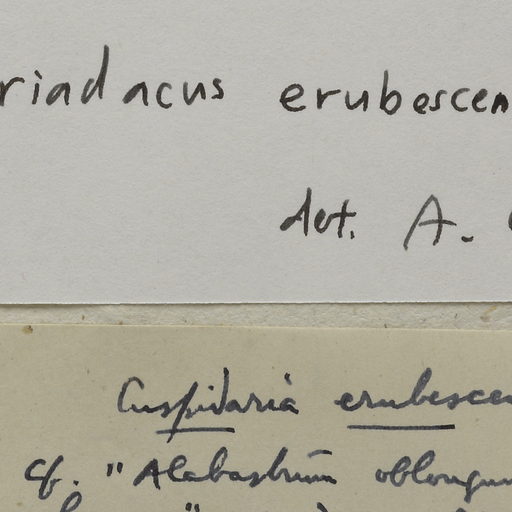 riadacus erubescen
det. A.
Cuspidaria erubescen
cf. "Alabastrum oblongum